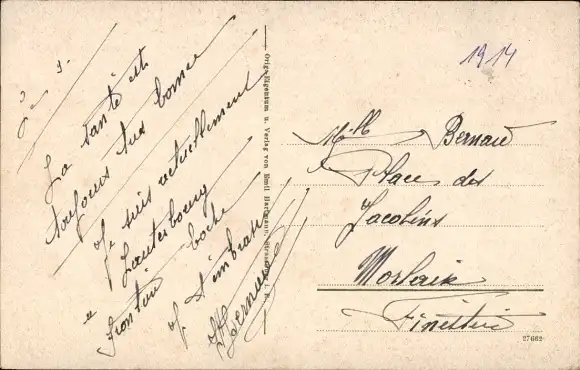 1914
La santé est
toujours très bonne
Je suis actuellement
à Lauterbourg
frontière boche
Je t'embrasse
HBernard
Orig.-Eigentum u. Verlag von Emil Hartmann, Strassburg i. E.
Mlle Bernard
Place des
Jacobins
Morlaix
Finistère
27662